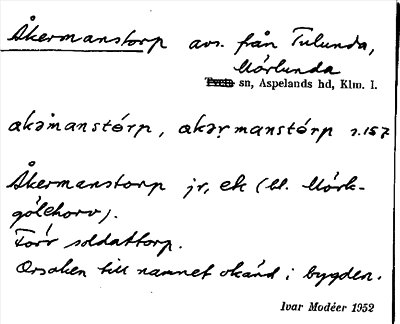 Åkermanstorp avs. från Tulunda,
Mörlunda
Tveta sn, Aspelands hd, Klm. l.
akəmanstórp, akərmanstórp s.157
Åkermanstorp jr, ek (bl. Mörk-
gölehorv).
Förr soldattorp.
Orsaken till namnet okänd i bygden.
Ivar Modéer 1952